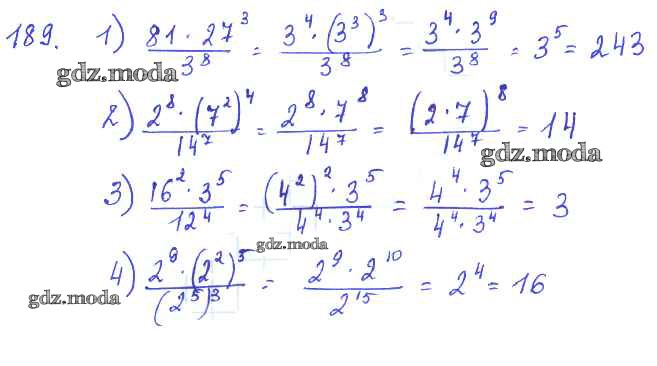 189. 1) (81 · 27³)/3⁸ = (3⁴ · (3³)³)/3⁸ = (3⁴ · 3⁹)/3⁸ = 3⁵ = 243
gdz.moda
2) (2⁸ · (7²)⁴)/14⁷ = (2⁸ · 7⁸)/14⁷ = (2 · 7)⁸/14⁷ = 14
gdz.moda
3) (16² · 3⁵)/12⁴ = ((4²)² · 3⁵)/(4⁴ · 3⁴) = (4⁴ · 3⁵)/(4⁴ · 3⁴) = 3
gdz.moda
4) (2⁹ · (2²)⁵)/(2⁵)³ = (2⁹ · 2¹⁰)/2¹⁵ = 2⁴ = 16
gdz.moda